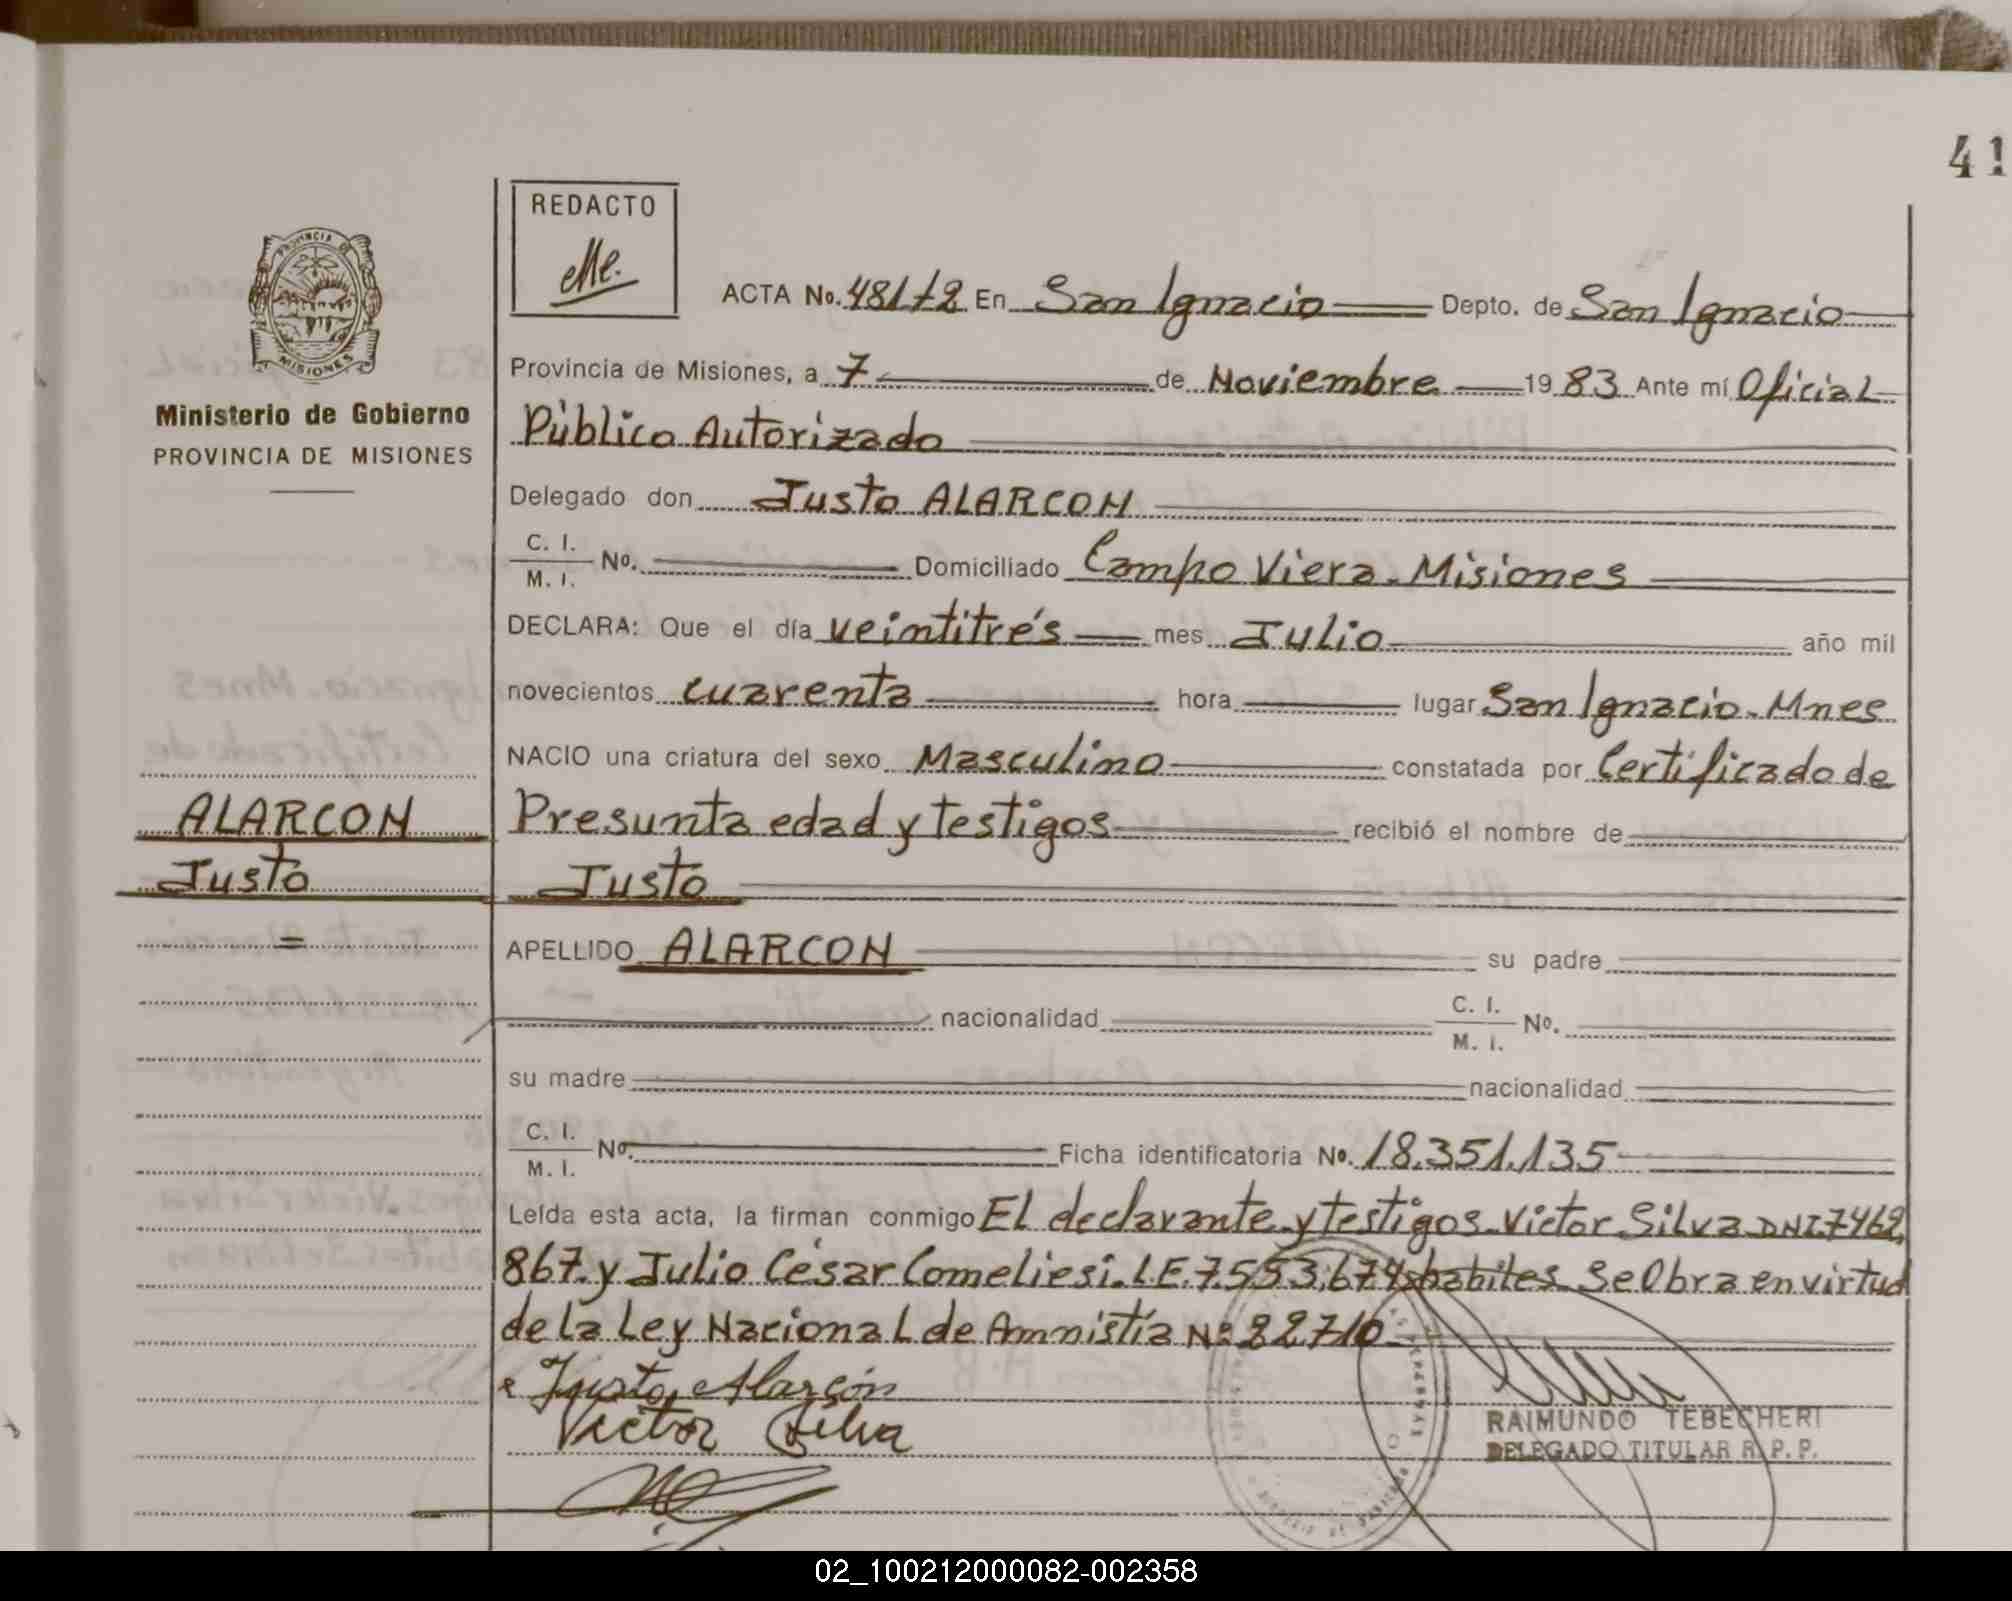 41
REDACTO
Me.
PROVINCIA DE
MISIONES
Ministerio de Gobierno
PROVINCIA DE MISIONES
ACTA No. 481/t2 En San Ignacio Depto. de San Ignacio
Provincia de Misiones, a 7 de Noviembre 19 83 Ante mí Oficial
Público Autorizado
Delegado don Justo ALARCON
C. I.
M. I. No. Domiciliado Campo Viera-Misiones
DECLARA: Que el día veintitrés mes Julio año mil
novecientos cuarenta hora lugar San Ignacio-Mnes
NACIO una criatura del sexo Masculino constatada por Certificado de
ALARCON
Presunta edad y testigos recibió el nombre de
Justo
Justo
=
APELLIDO ALARCON su padre
nacionalidad C. I.
M. I. No.
su madre nacionalidad
C. I.
M. I. No. Ficha identificatoria No. 18.351.135
Leída esta acta, la firman conmigo El declarante y testigos Victor Silva DNI 7462.
867. y Julio César Comeliesi. L.E. 7.553.674 habiles Se Obra en virtud
de la Ley Nacional de Amnistia Nº 22710
Justo, Alarcón
Victor Silva
RAIMUNDO TEBECHERI
DELEGADO TITULAR R. P. P.
02_100212000082-002358